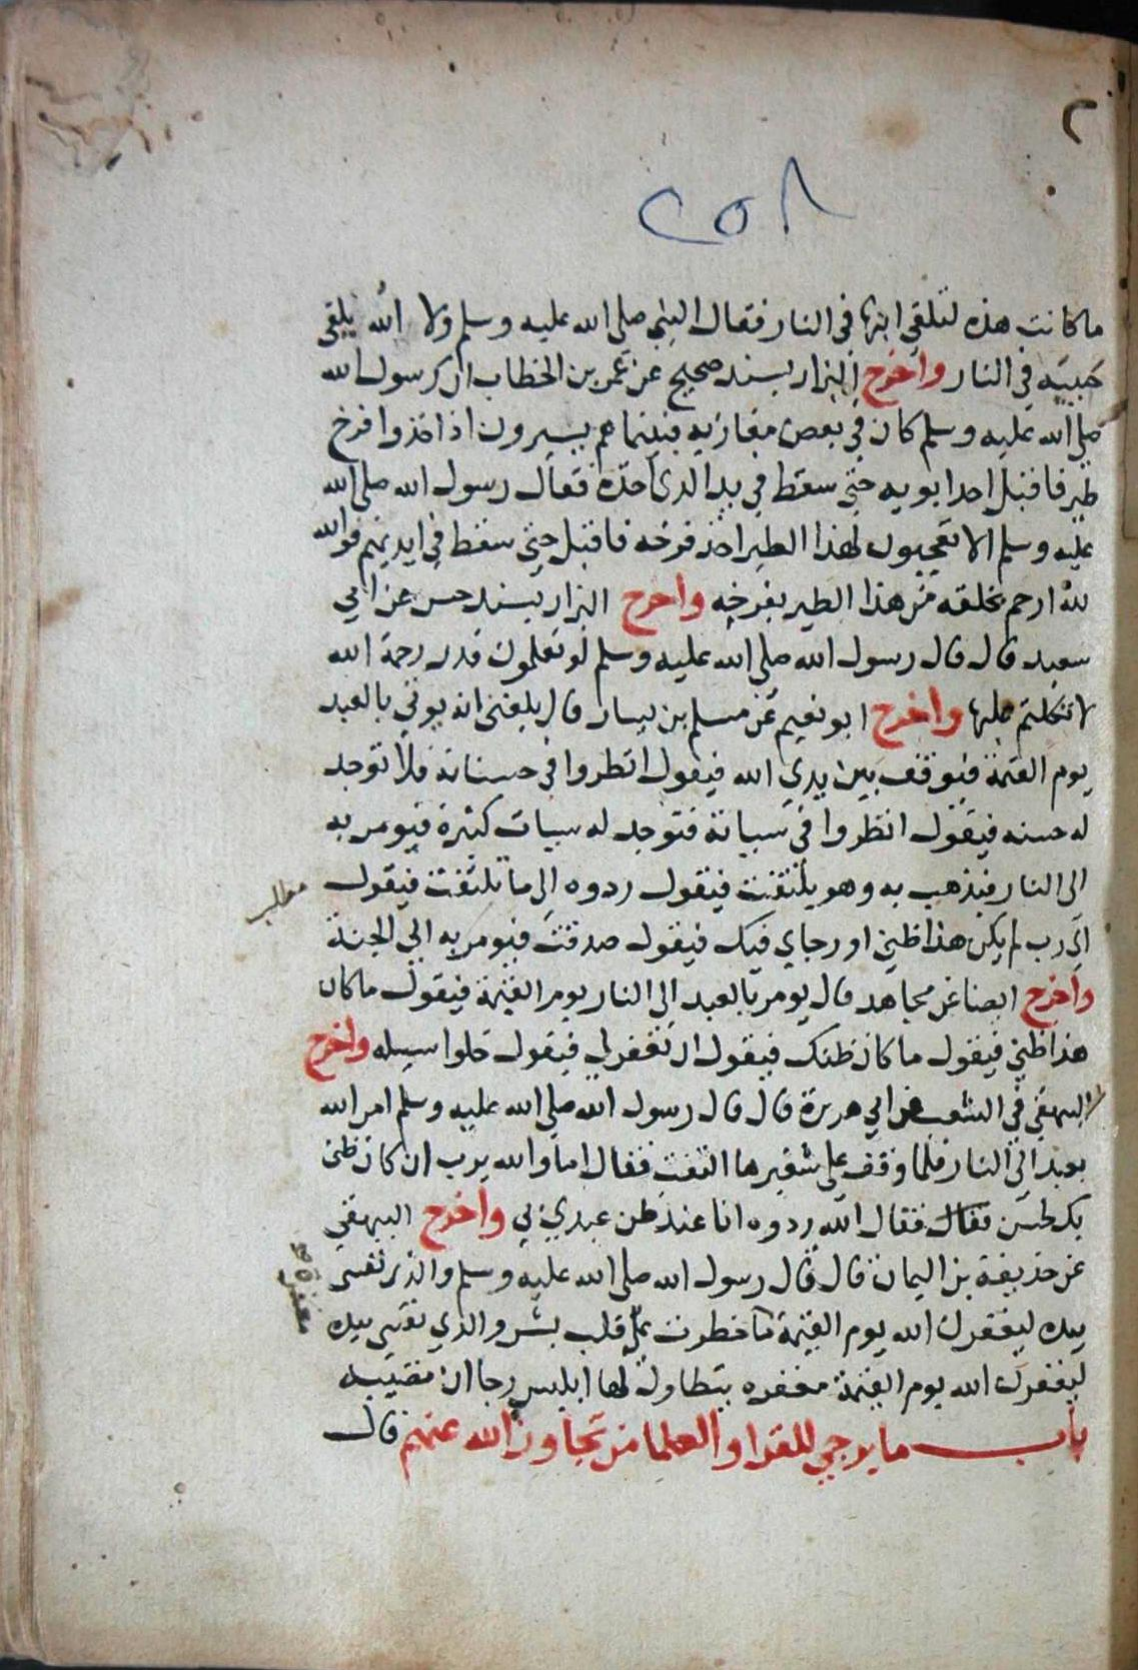 ٢
٢٥٨
ما كانت هذه لتلقي ابنها في النار فقال النبي صلى الله عليه وسلم ولا الله يلقى
حبيبه في النار واخرج البزار بسند صحيح عن عمر بن الخطاب ان رسول الله
صلى الله عليه وسلم كان في بعض مغازيه فبينما هم يسيرون اذ اخذوا فرخ
طير فاقبل احد ابويه حتى سقط في يد الذي اخذه فقال رسول الله صلى الله
عليه وسلم الا تعجبون لهذا الطير اخذ فرخه فاقبل حتى سقط في ايديهم فوالله
لله ارحم بخلقه من هذا الطير بفرخه واخرج البزار بسند حسن عن ابي
سعيد قال قال رسول الله صلى الله عليه وسلم لو تعلمون قدر رحمة الله
لاتكلتم عليها واخرج ابو نعيم عن مسلم بن يسار قال بلغني انه يوتي بالعبد
يوم القيمة فيوقف بين يدي الله فيقول انظروا في حسناته فلا توجد
له حسنه فيقول انظروا في سياته فتوجد له سيات كثيرة فيومر به
الى النار فيذهب به وهو يلتفت فيقول ردوه الى ما تلتفت فيقول
اي رب لم يكن هذا ظني او رجاي فيك فيقول صدقت فيومر به الي الجنة
مطلب
واخرج ايضا عن مجاهد قال يومر بالعبد الى النار يوم القيمة فيقول ما كان
هذا ظني فيقول ما كان ظنك فيقول ان تغفر لي فيقول خلوا سبيله واخرج
البيهقي في الشعب عن ابي هريرة قال قال رسول الله صلى الله عليه وسلم امر الله
بعبد الي النار فلما وقف على شفيرها التفت فقال اما والله يرب ان كان ظني
بك لحسن فقال فقال الله ردوه انا عند ظن عبدي بي واخرج البيهقي
عن حذيفة بن اليمان قال قال رسول الله صلى الله عليه وسلم والذي نفسي
بيده ليغفرن الله يوم القيمة ما خطرت على قلب بشر والذي نفسي بيده
ليغفرن الله يوم القيمة مغفره يتطاول لها ابليس رجا ان تصيبه
باب ما يرجي للقرا والعلما من تجاوز الله عنهم قال